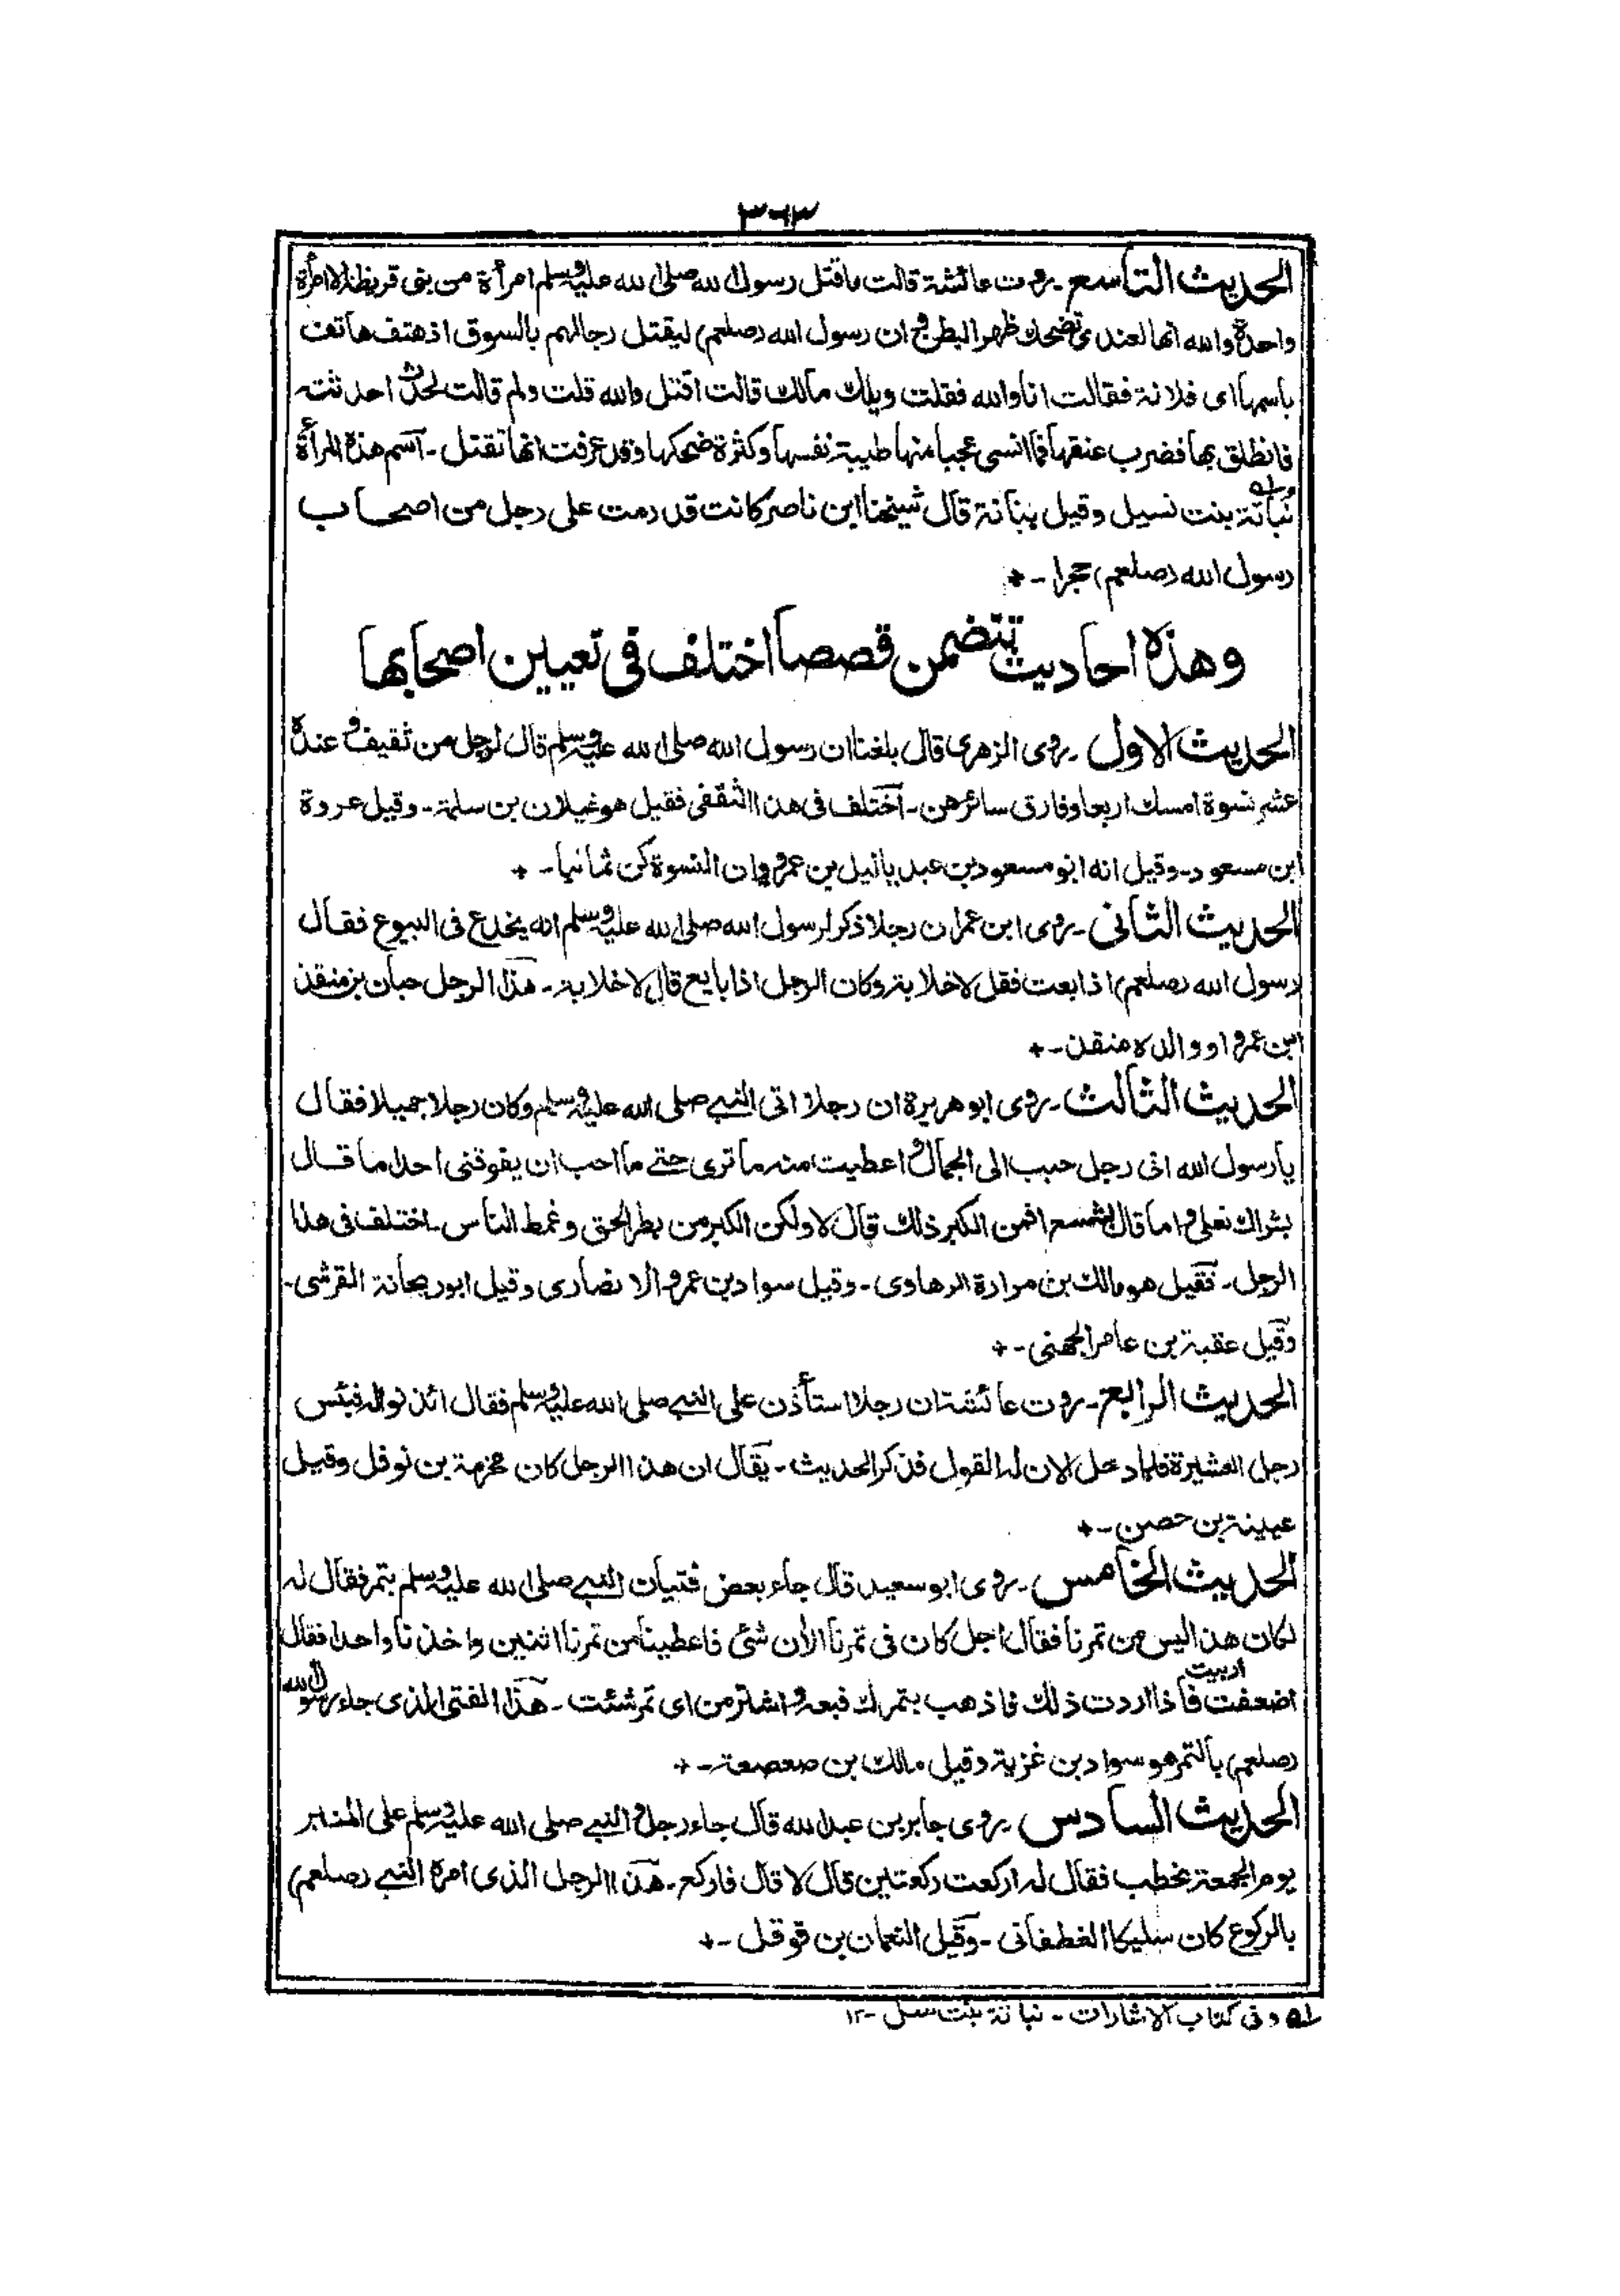 ٣٦٣
الحديث التاسع ـ روت عائشة قالت ما قتل رسول الله صلى الله عليه وسلم امرأة من بنى قريظة الا امرأة
واحدة والله انها لعندى تضحك ظهرا لبطن و ان رسول الله (صلعم) ليقتل رجالهم بالسوق اذ هتف هاتف
باسمها اى فلانة فقالت انا والله فقلت ويلك مالك قالت اقتل والله قلت ولم قالت لحدث احدثته
فانطلق بها فضرب عنقها فما انسى عجبا منها طيبة نفسها وكثرة ضحكها وقد عرفت انها تقتل ـ اسم هذه المرأة
نُباتة بنت نسيل وقيل بنانة قال شيخنا ابن ناصر كانت قد رمت على رجل من اصحاب
رسول الله (صلعم) حجرا ـ +
وهذه احاديث تتضمن قصصا اختلف فى تعيين اصحابها
الحديث الاول ـ روى الزهرى قال بلغنا ان رسول الله صلى الله عليه وسلم قال لرجل من ثقيف و عنده
عشر نسوة امسك اربعا وفارق سائرهن ـ اختلف فى هذا الثقفى فقيل هو غيلان بن سلمة ـ وقيل عروة
ابن مسعود ـ وقيل انه ابو مسعود بن عبد ياليل بن عمرو وان النسوة كن ثمانيا ـ +
الحديث الثانى ـ روى ابن عمر ان رجلا ذكر لرسول الله صلى الله عليه وسلم انه يخدع فى البيوع فقال
رسول الله (صلعم) اذا بعت فقل لا خلابة وكان الرجل اذا بايع قال لا خلابة ـ هذا الرجل حبان بن منقذ
ابن عمرو او والده منقذ ـ +
الحديث الثالث ـ روى ابو هريرة ان رجلا اتى النبى صلى الله عليه وسلم وكان رجلا جميلا فقال
يا رسول الله انى رجل حبب الى الجمال و اعطيت منه ما ترى حتى ما احب ان يفوقنى احد اما قال
بشراك نعلى و اما قال بشسع افمن الكبر ذلك قال لا ولكن الكبر من بطر الحق وغمط الناس ـ اختلف فى هذا
الرجل ـ فقيل هو مالك بن مرارة الرهاوى ـ وقيل سواد بن عمرو الانصارى وقيل ابو ريحانة القرشى ـ
وقيل عقبة بن عامر الجهنى ـ +
الحديث الرابع ـ روت عائشة ان رجلا استأذن على النبى صلى الله عليه وسلم فقال ائذنوا له فبئس
رجل العشيرة فلما دخل الان له القول فذكر الحديث ـ يقال ان هذا الرجل كان مخرمة بن نوفل وقيل
عيينة بن حصن ـ +
الحديث الخامس ـ روى ابو سعيد قال جاء بعض فتيان النبى صلى الله عليه وسلم بتمر فقال له
لكان هذا ليس من تمرنا فقال اجل كان فى تمرنا الأن شئ فاعطينا من تمرنا اثنين واخذنا واحدا فقال
اضعفت اربيت فاذا اردت ذلك فاذهب بتمرك فبعه و اشتر من اى تمر شئت ـ هذا الفتى الذى جاء رسول الله
(صلعم) بالتمر هو سواد بن غزية وقيل مالك بن صعصعة ـ +
الحديث السادس ـ روى جابر بن عبد الله قال جاء رجل و النبى صلى الله عليه وسلم على المنبر
يوم الجمعة يخطب فقال له اركعت ركعتين قال لا قال فاركع ـ هذا الرجل الذى امره النبى (صلعم)
بالركوع كان سليكا الغطفانى ـ وقيل النعمان بن قوقل ـ +
له و فى كتاب الاشارات ـ نباتة بنت سل ـ ١٢